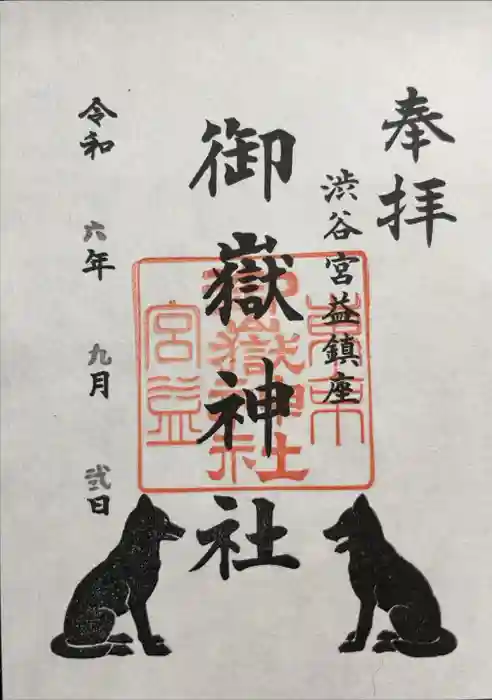 奉拝
渋谷宮益鎮座
御嶽神社
令和 六年 九月 弐日
東京
御嶽神社
宮益